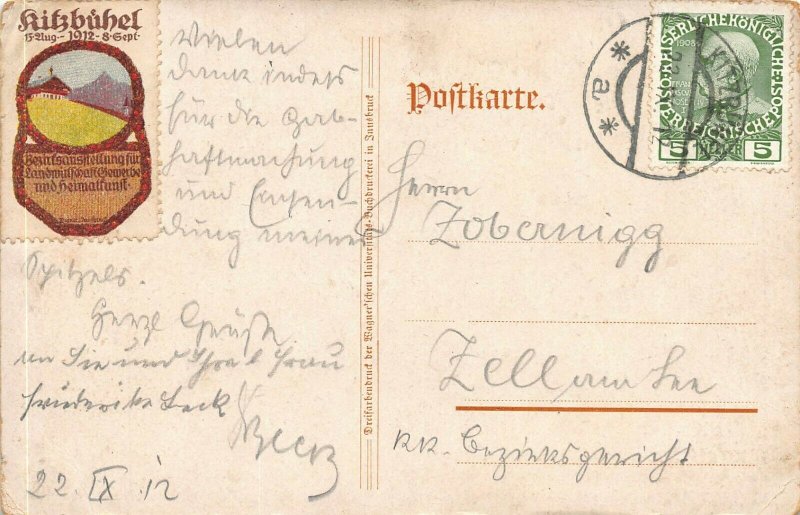 Kitzbühel
15·Aug·- 1912 - 8·Sept·
Bezirksausstellung für
Landwirtschaft, Gewerbe
und Heimatkunst
Vielen
Dank indess
für die Hab-
haftmachung
und Einsen-
dung meines
Spitzels.
Herzl Grüße
an Sie und Ihre l Frau
Friederike Beck
Beck
22. IX 12
Dreifarbendruck der Wagner'schen Universitäts-Buchdruckerei in Innsbruck
Postkarte.
KAISERLICHE KÖNIGLICHE
ÖSTERREICHISCHE POST
1908
5 5
KITZBÜ
* a *
Herrn
Zobernigg
Zell am See
KK. Bezirksgericht